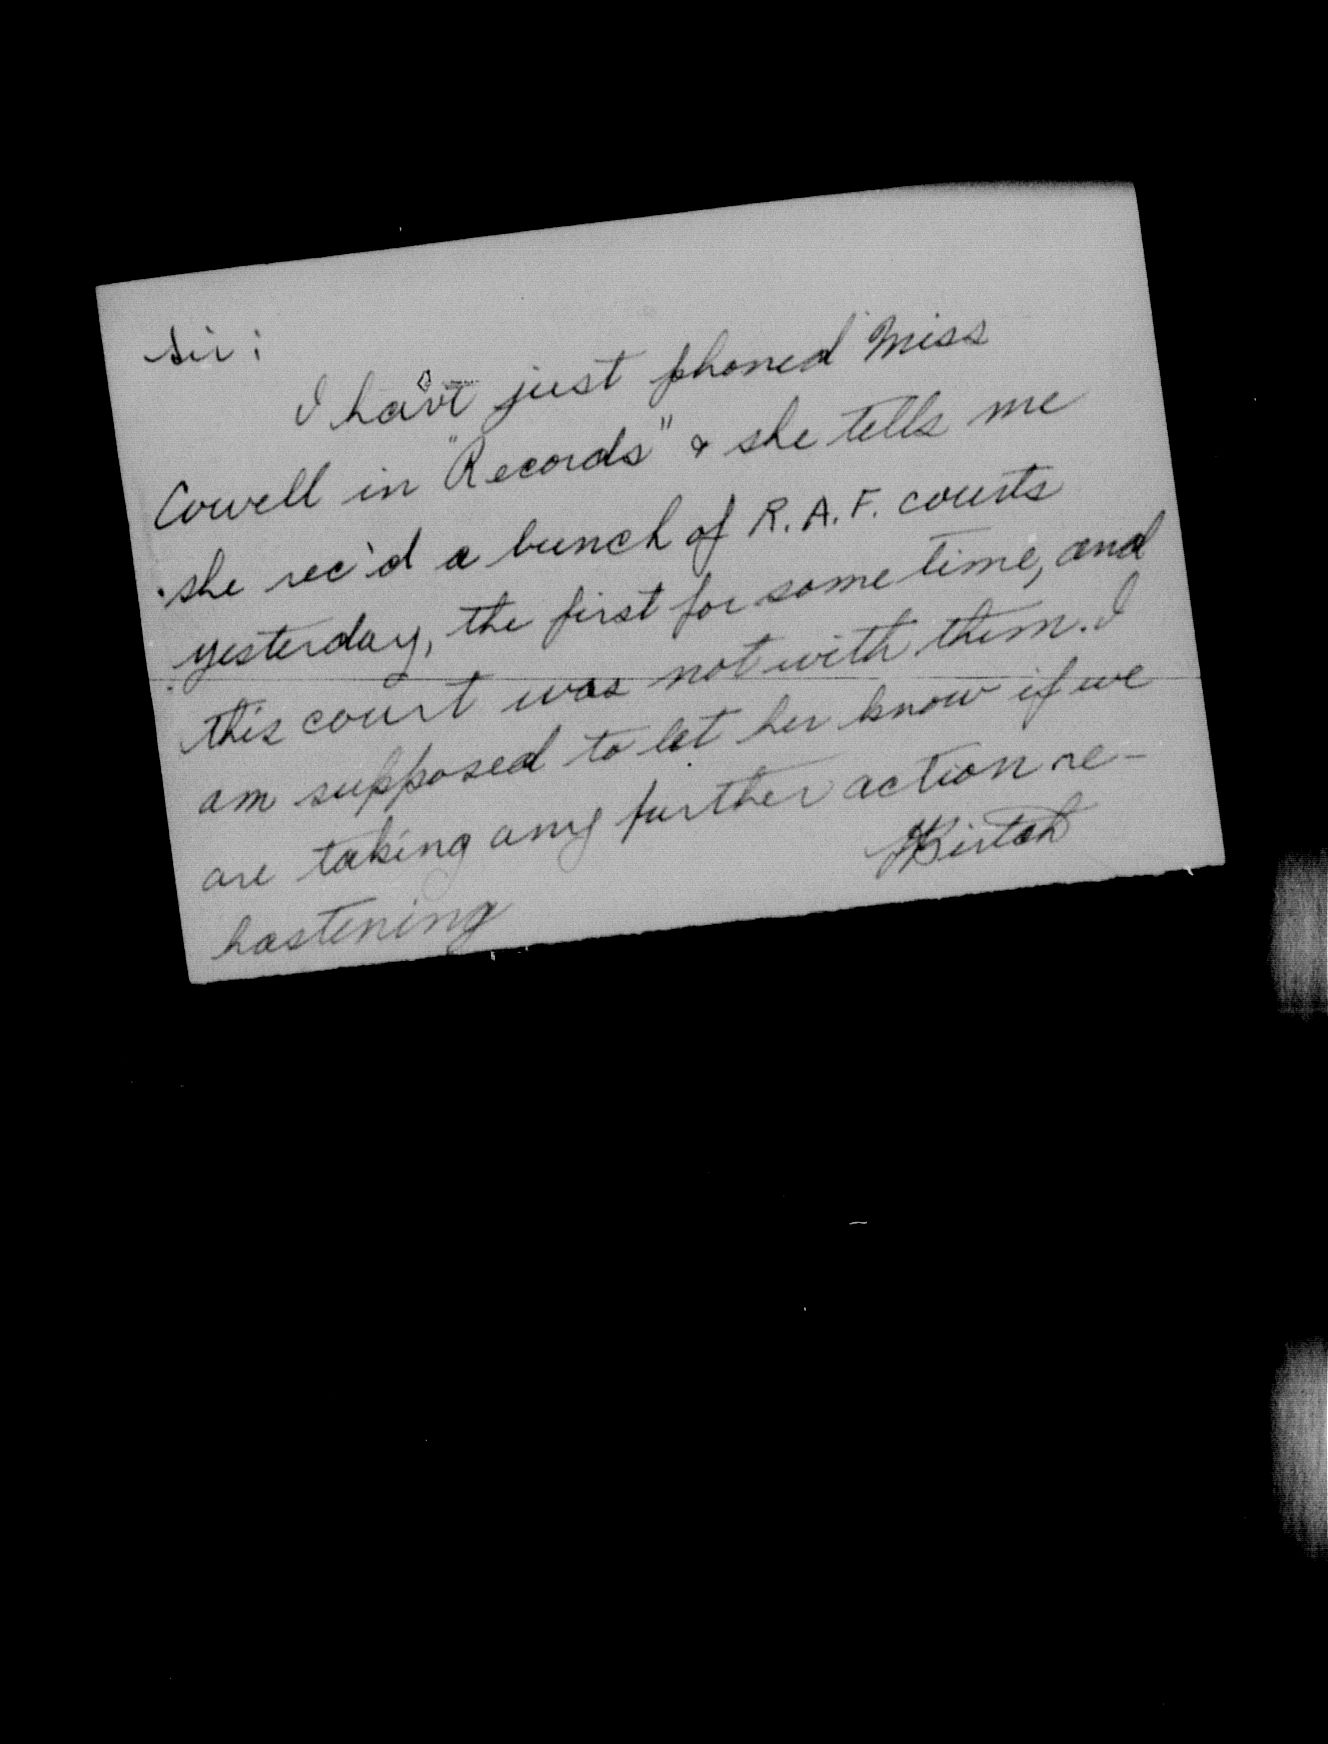 Sir:
I have just phoned Miss
Cowell in "Records" & she tells me
she rec'd a bunch of R.A.F. courts
yesterday, the first for some time, and
this court was not with them. I
am supposed to let her know if we
are taking any further action re-
hastening